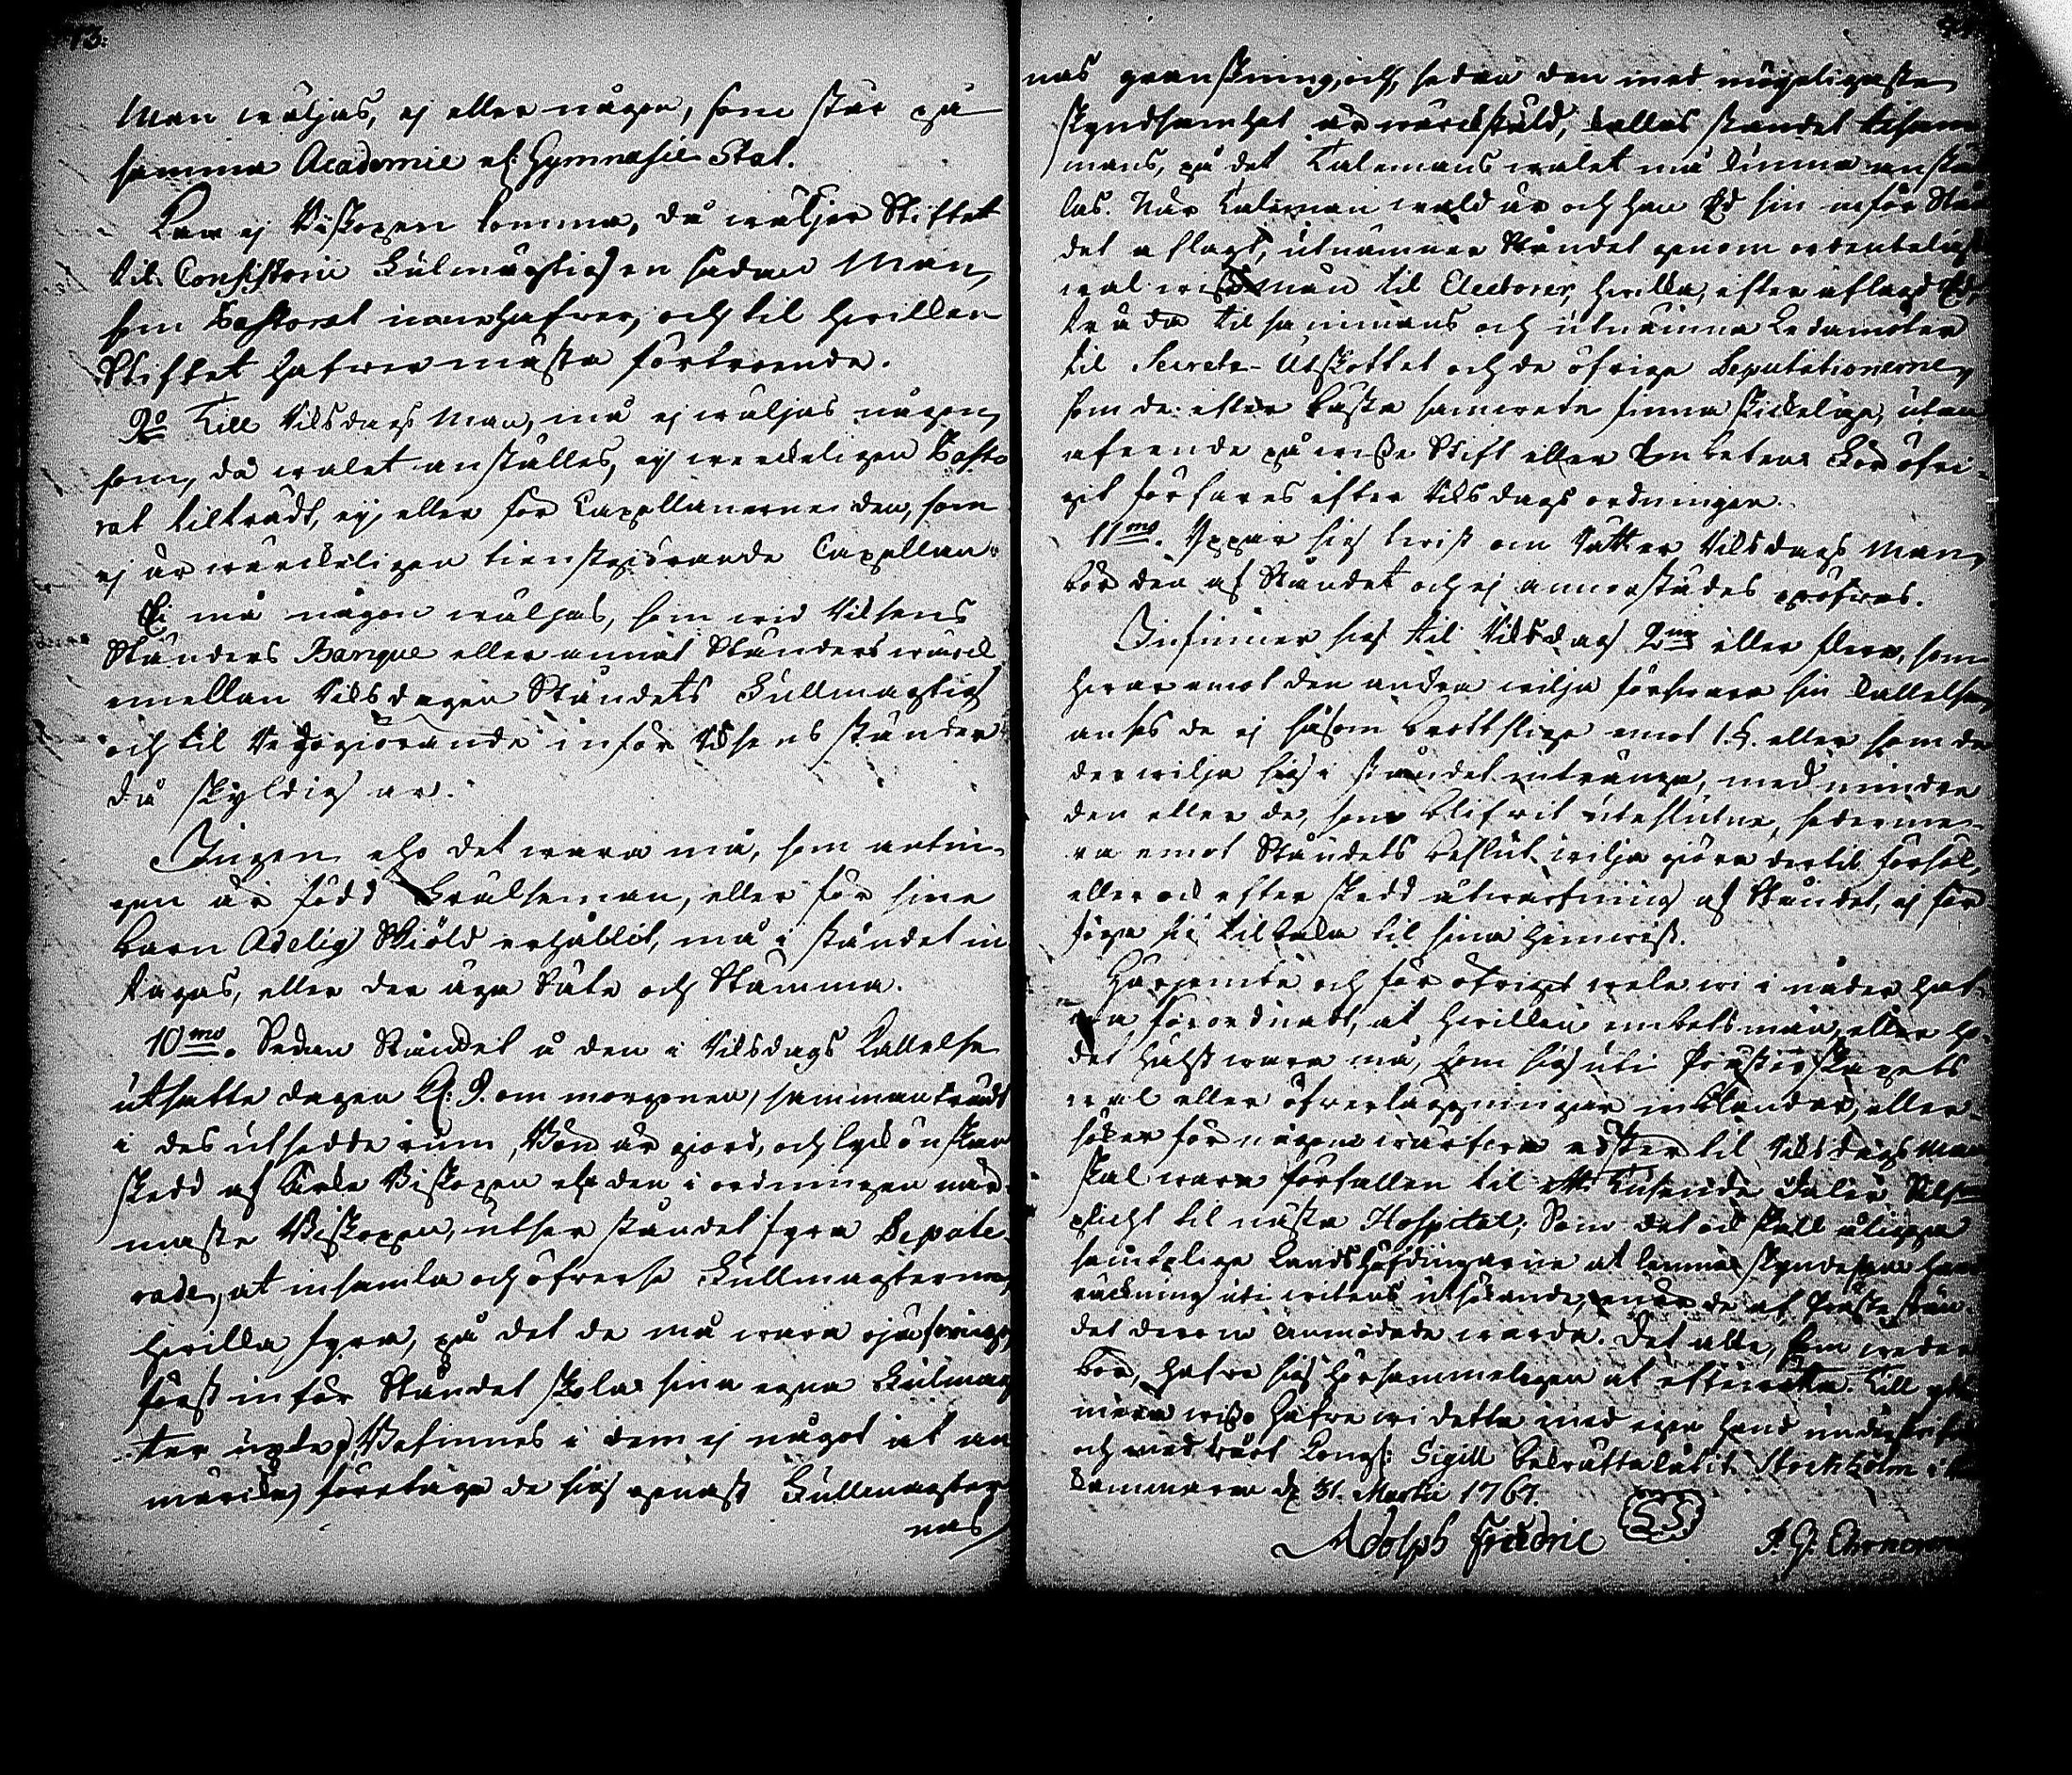 73.
Man wäljas, ej eller någon, som står på
samma Academie el. Gymnasie Stat.
Kan ej Biskopen komma, då wäljer Stiftet
til Consistorii Fulmägtig en sådan Man,
som Pastorat innehafwer, och til hwilken
Stiftet hafwer mästa förtroende.
9o Till Riksdags Man, må ej wäljas någon,
som, då walet anställes, ej werckeligen Pasto
rat tilträdt, ej eller för Capellanerne den, som
ej är wärckeligen tienstgiörande Capellan.
Ei må någon wäljas, som wid Riksens
Ständers Banque eller annat Ständers wärck
emellan Riksdagen Ståndets Fullmägtig
och til Redogiörande inför Riksens Ständer
då skyldig är.
Ingen eho det wara må, som antin-
gen är född Frälseman, eller för sine
barn Adelig Skiöld erhållit, må i ståndet in
tagas, eller der äga Säte och Stämma.
10mo. Sedan Ståndet å den i Riksdags Kallelse
utsatte dagen Kl: 9. om morgonen, sammanträdt
i des utsedde rum, Bön är giord, och lyckönskan
skedd af Ärke Biskopen el. den i ordningen när-
maste Biskopen, utser ståndet fyra Depute
rade, at insamla och öfwerse Fullmagterna,
hwilka fyra, på det de må wara ojäfwige,
först inför Ståndet skola sina egna Fulmag
ter upte, Befinnes i dem ej något at an
märcka, företaga de sig genast Fullmagter
nas
nas granskning, och, sedan den med möjeligaste
skyndsamhet är wärckstäld, kallas ståndet tilsam
mans, på det Talemans walet må kunna anstäl
las. När Taleman wald är och han Ed sin inför Stån
det aflagt, utnämner Ståndet genom ordenteligt
wal wisse män til Electorer, hwilka, efter aflagd Ed,
träda tilsammans och utnämna Ledamöter
til Secrete-Utskottet och de öfrige Deputationerne,
som de efter bästa samwete finna skickelige, utan
afseende på wisse Stift eller Embeten. För öfri-
git förfares efter Riksdags ordningen.
11mo. Yppar sig twist om Rätter Riksdags Man,
bör den af Ståndet och ej annorstädes pröfwas.
Infinner sig til Riksdag 2ne eller flere, som
hwar emot den andra wilja förswara sin kallelse,
anses de ej såsom brottslige emot 1.§. eller som de
der wilja sig i ståndet intränga, med mindre
den eller de, som blifwit uteslutne, sederme-
ra emot Ståndets beslut wilja giöra dertil förfal,
eller ock efter skedd utwarfning af Ståndet, ej för
foga sig tilbaka til sina hemwist.
Härjemte och för öfrigit wele wi i nåder haf-
wa förordnadt, at hwilken embetsman, eller ho
det hälst wara må, som sig uti Prästerskapets
wal eller öfwerläggningar inblandar, eller
söker för någon wärfwa röster til Riksdags Man
skal wara förfallen til ett Tusende daler Silf-
plicht til nästa Hospital; Som det ock skall åligga
samtelige Landshöfdingarne at lemna skyndesam hand
räckning uti witens utsökande, när de af Prästestån
det derom anmodade warda. Det alle, som weder
bör, hafwe sig hörsammeligen at efterrätta. Till ytter
mera wisso hafwe wi detta med egen hand underskrifwit
och med wårt Kongl: Sigill bekräfta låtit. Stockholm i Råd
Cammaren d. 31. Martii 1767.
Adolph Fredric
LS